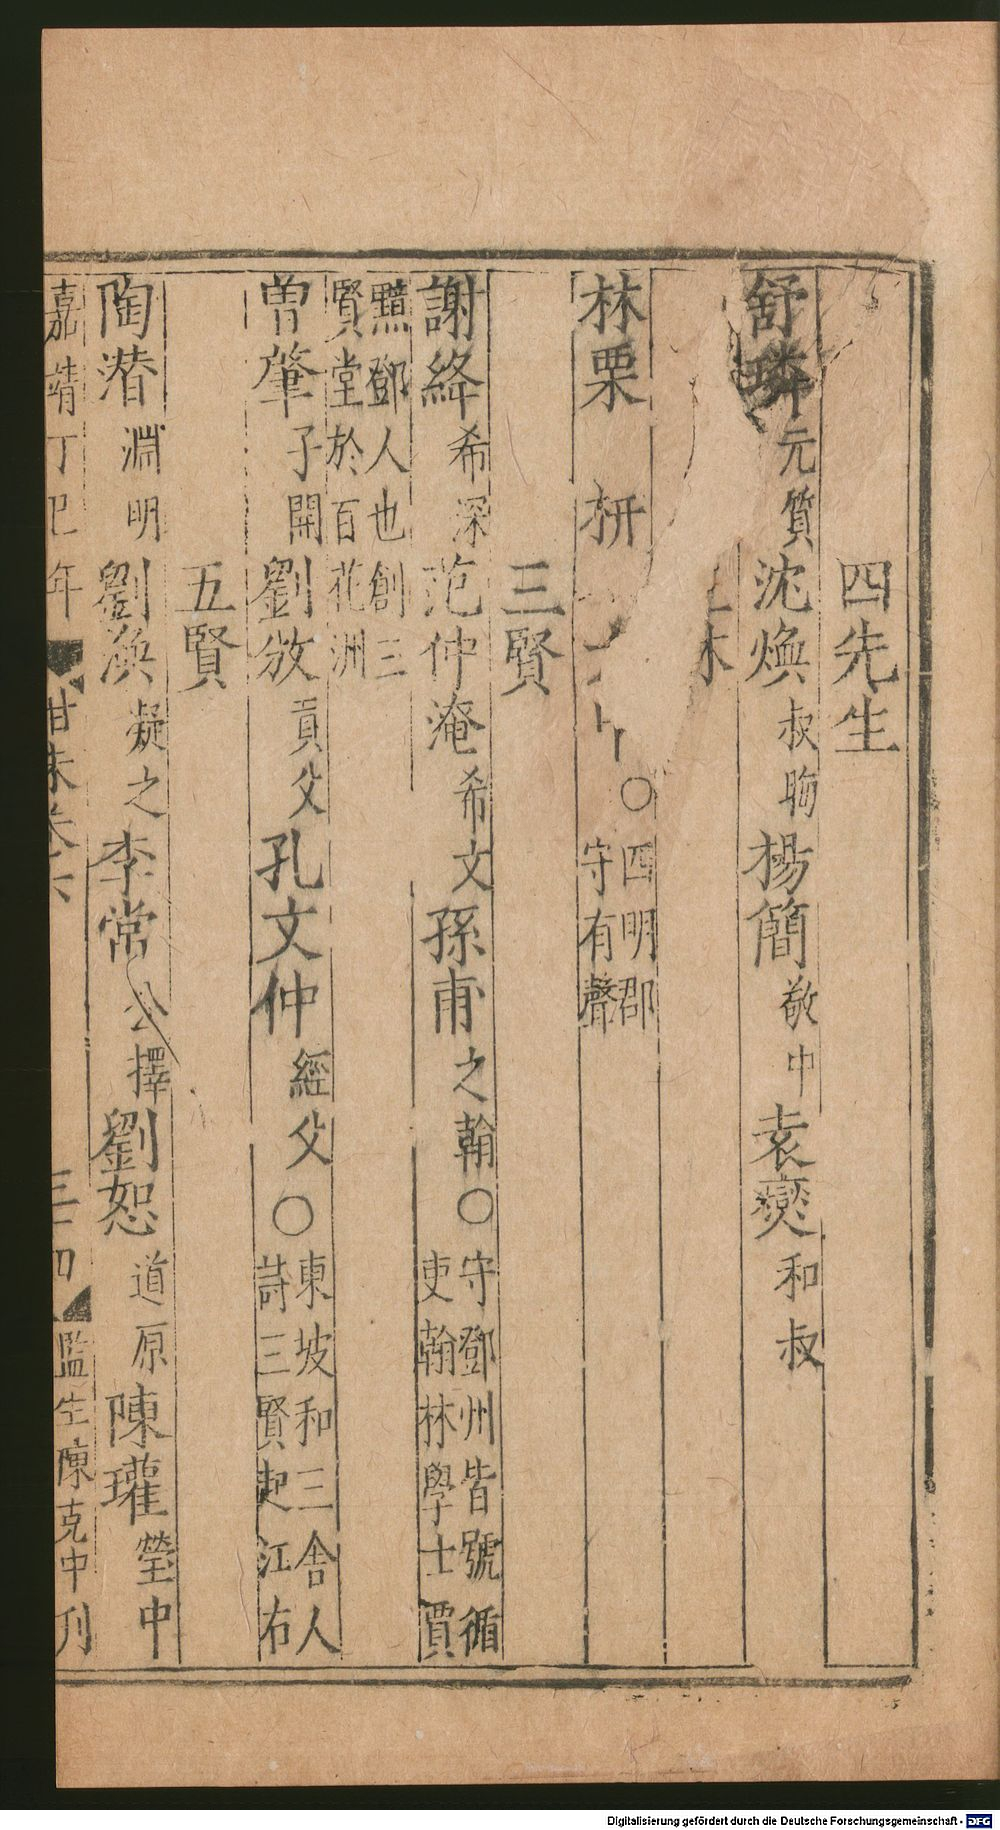 四先生
舒璘元質沈煥叔晦楊簡敬中袁燮和叔
林栗 枅 ○四明郡守有聲
三賢
謝絳希深范仲淹希文孫甫之翰○守鄧州皆號循吏翰林學士賈
黯鄧人也創三賢堂於百花洲
曾肇子開劉攽貢父孔文仲經父○東坡和三舍人詩三賢起江右
五賢
陶潛淵明劉渙凝之李常公擇劉恕道原陳瓘瑩中
嘉靖丁巳年 監生陳克中刊
Digitalisierung gefördert durch die Deutsche Forschungsgemeinschaft - DFG